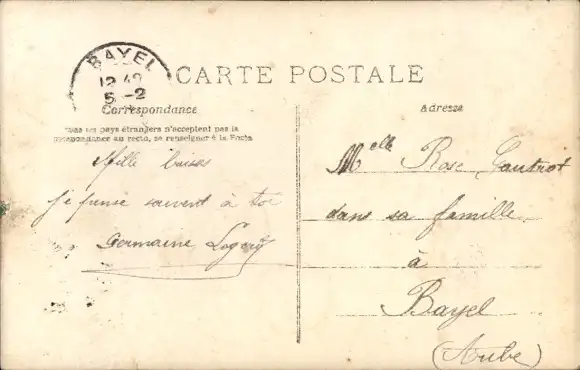 BAYEL
12 40
5 -2
CARTE POSTALE
Correspondance
Adresse
Tous les pays étrangers n'acceptent pas la
correspondance au recto, se renseigner à la Poste
Mille baises
je pense souvent à toi
Germaine
Melle Rose Gautrot
dans sa famille
à
Bayel
(Aube)